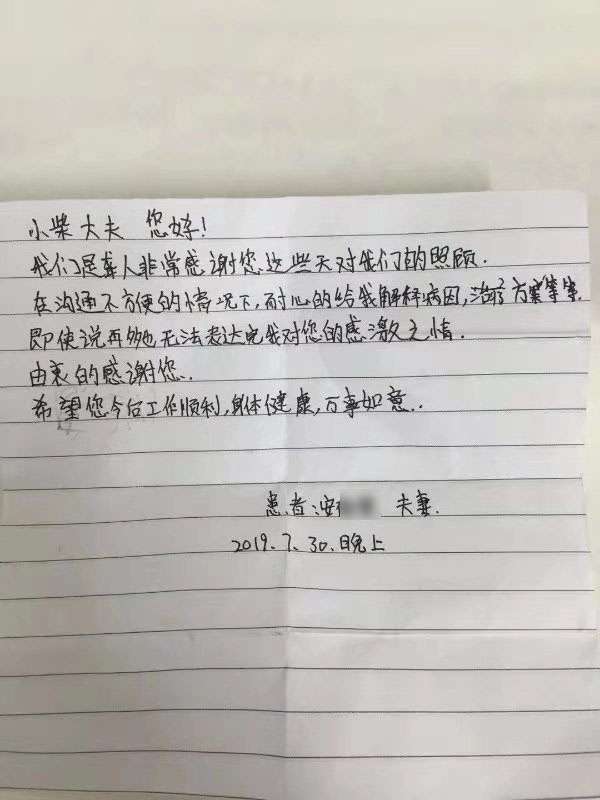 小柴大夫 您好!
我们是聋人非常感谢您这些天对我们的照顾.
在沟通不方便的情况下,耐心的给我解释病因,治疗方案等等.
即使说再多也无法表达完我对您的感激之情.
由衷的感谢您.
希望您今后工作顺利,身体健康,万事如意..
患者:安 夫妻.
2019.7.30.晚上